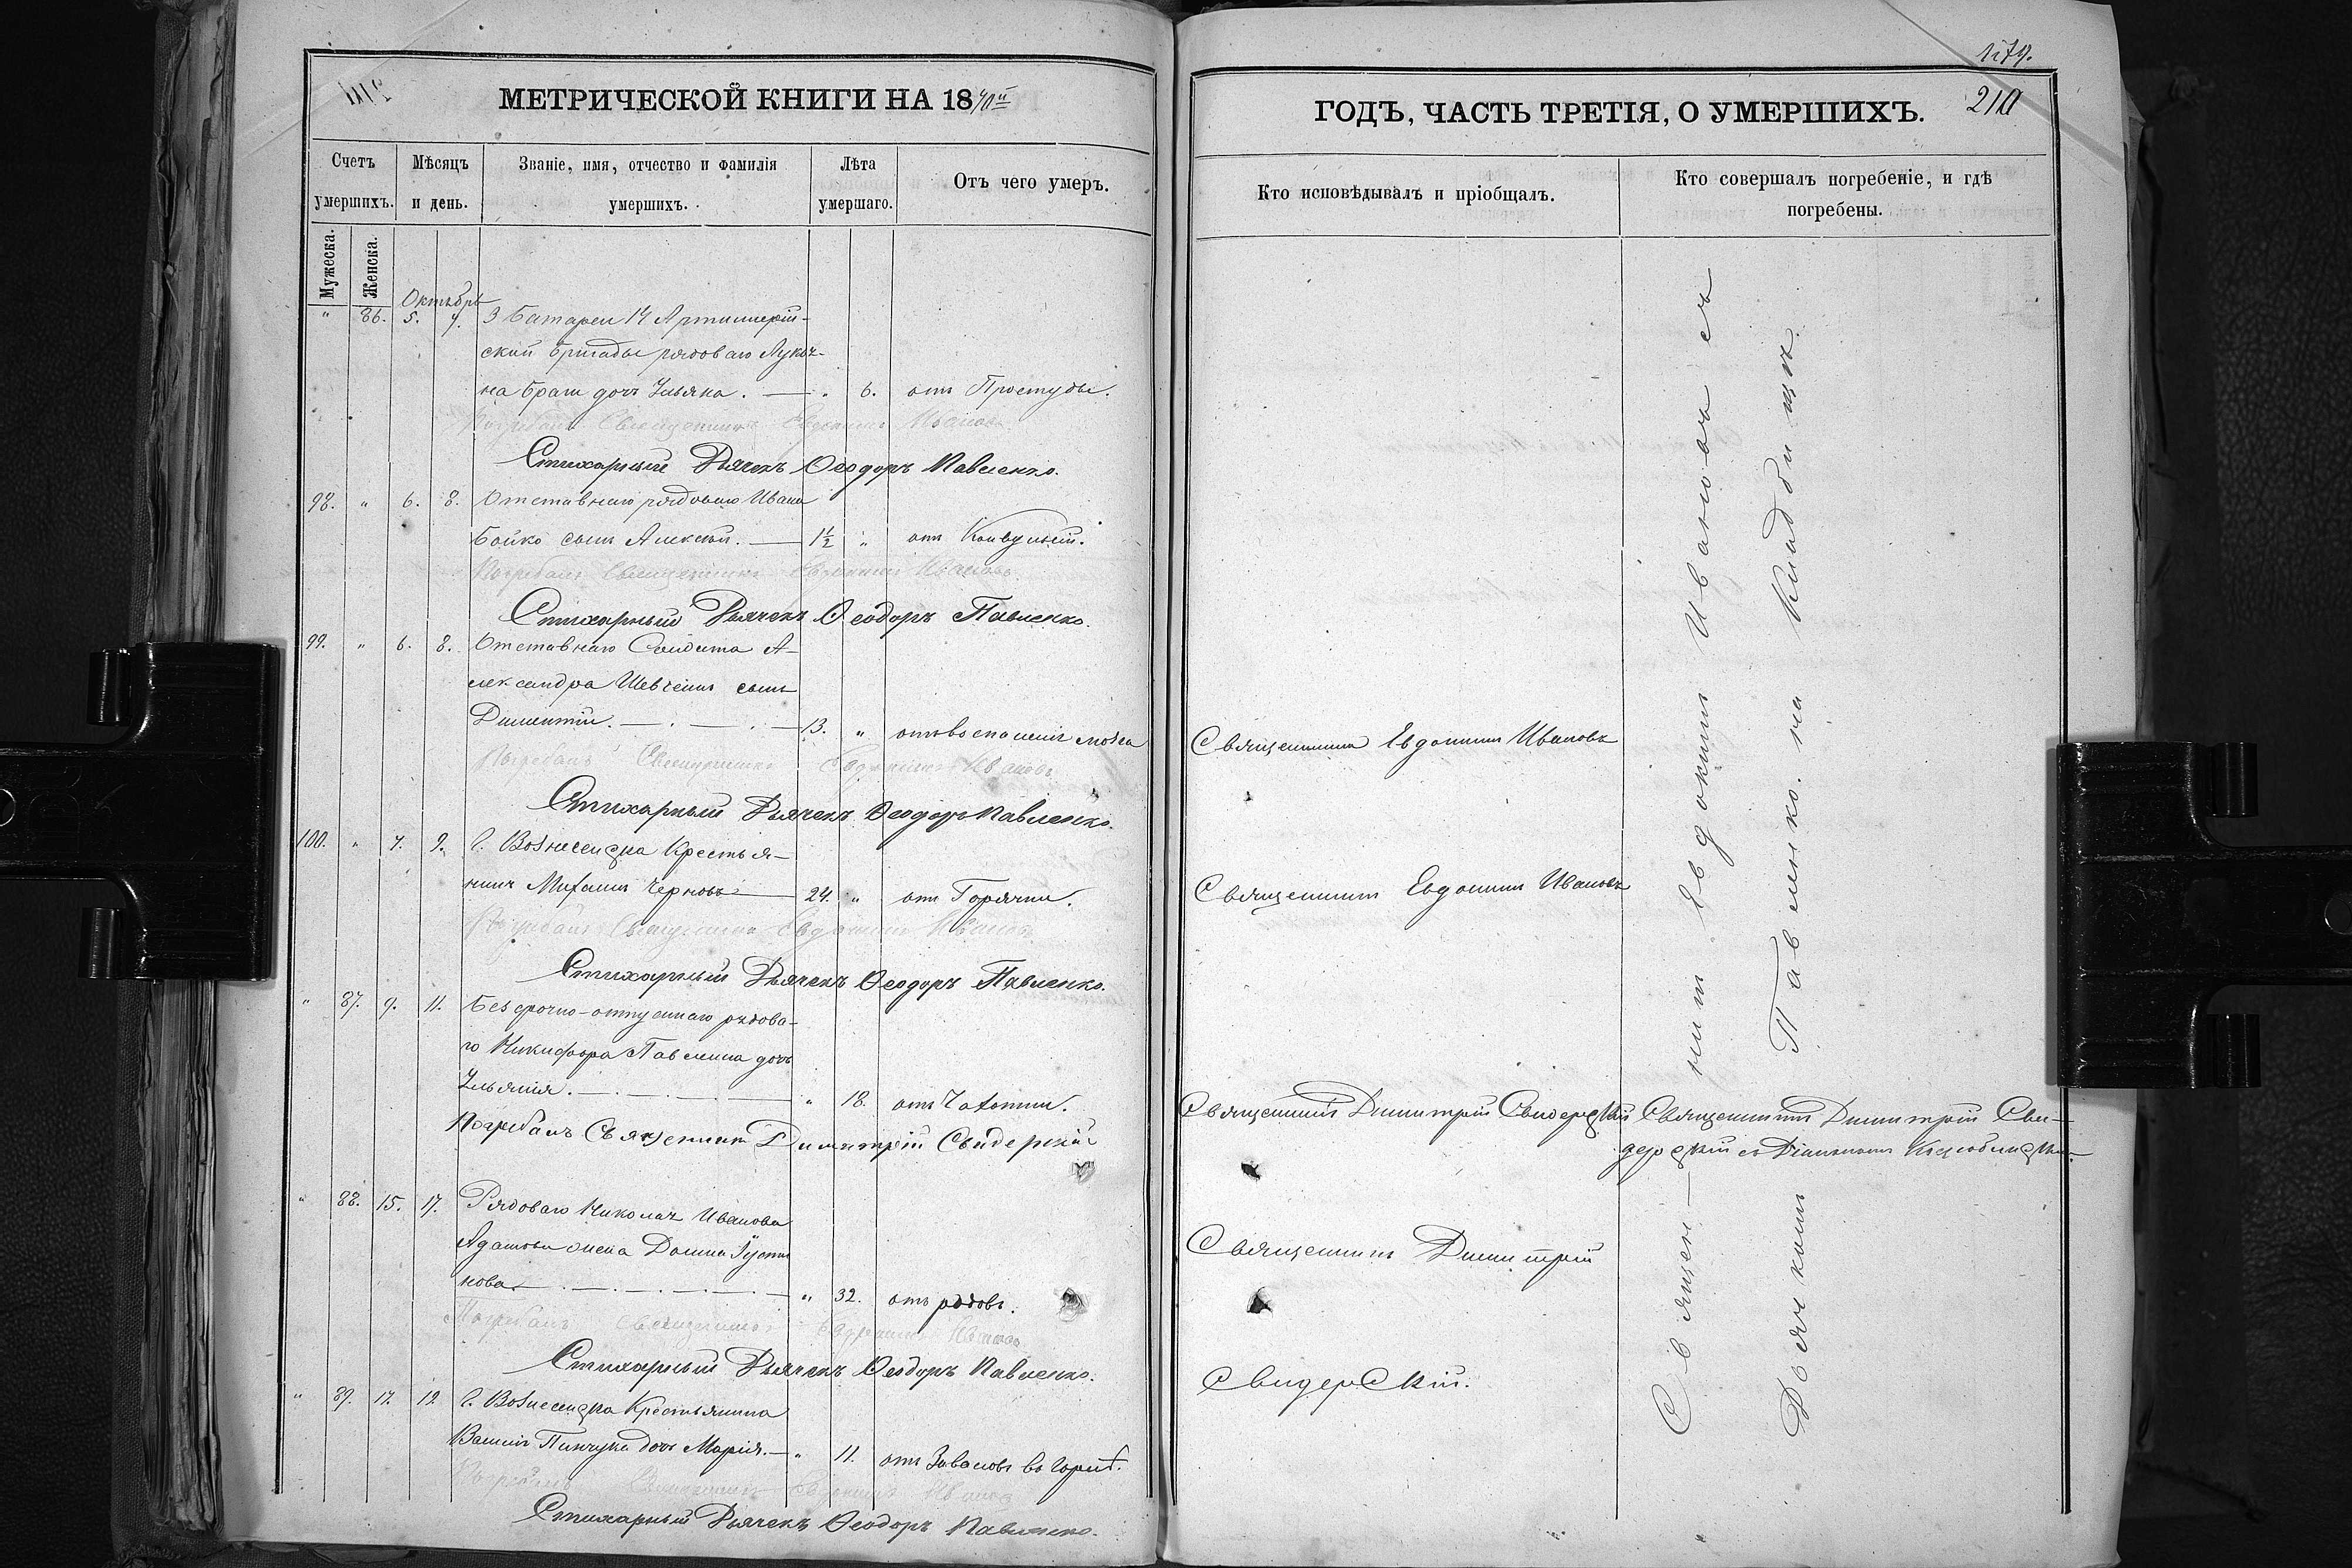 1179.
МЕТРИЧЕСКОЙ КНИГИ НА 1870й
ГОДЪ, ЧАСТЬ ТРЕТІЯ, О УМЕРШИХЪ. 210
Счетъ умершихъ.
Мѣсяцъ и день.
Званіе, имя, отчество и фамилія умершихъ.
Лѣта умершаго.
Отъ чего умеръ.
Кто исповѣдывалъ и пріобщалъ.
Кто совершалъ погребеніе, и гдѣ погребены.
Мужеска.
Женска.
Октябрь
" 86. 5. 7. 3 Батареи 14 Артиллерій-
ской бригады рядоваго
дочь Ульяна. — " 6. отъ Простуды.
Погребалъ Священникъ Евдокимъ Ивановъ.
Стихарный Дьячекъ Ѳеодоръ Павленко.
98. " 6. 8. Отставнаго рядоваго Ивана
Бойко сынъ Алексѣй. — 1½ " отъ Конвульсій.
Погребалъ Священникъ Евдокимъ Ивановъ.
Стихарный Дьячекъ Ѳеодоръ Павленко.
99. " 6. 8. Отставнаго Солдата А-
лександра Шевченка сынъ
Диментій. — 13. " отъ воспаленія мозга Священникъ Евдокимъ Ивановъ
Погребалъ Священникъ Евдокимъ Ивановъ
Стихарный Дьячекъ Ѳеодоръ Павленко.
100. " 7. 9. Г. Вознесенска Крестья-
нинъ Михаилъ Черновъ — 24. " отъ Горячки. Священникъ Евдокимъ Ивановъ
Погребалъ Священникъ Евдокимъ Ивановъ
Стихарный Дьячекъ Ѳеодоръ Павленко.
" 87. 9. 11. Безсрочно-отпускнаго рядова-
го Никифора Павлина дочь
Ульянія. — " 18. отъ Чахотки. Священникъ Димитрій Свидерскій Священникъ Димитрій Сви-
дерскій съ
Погребалъ Священникъ Димитрій Свидерскій
" 88. 15. 17. Рядоваго Николая Иванова
жена Домна
нова — " 32. отъ родовъ. Священникъ Димитрій
Погребалъ Священникъ Евдокимъ Ивановъ
Стихарный Дьячекъ Ѳеодоръ Павленко.
Свидерскій.
" 89. 17. 19. Г. Вознесенска Крестьянина
Василія Пинчука дочь Марія. — " 11. отъ въ горлѣ.
Погребалъ Священникъ Евдокимъ Ивановъ
Стихарный Дьячекъ Ѳеодоръ Павленко.
Священ- никъ Евдокимъ Ивановъ съ
Дьячкомъ Павленко. на Кладбищѣ.